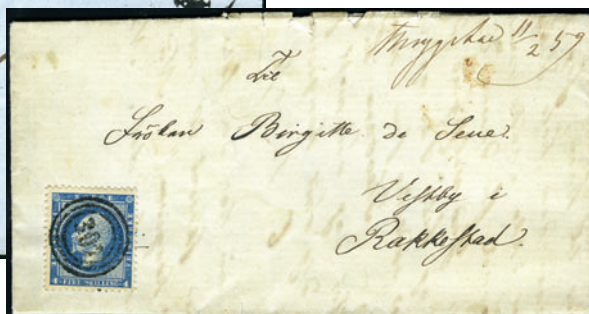 Thrygstad 11/2 59
Til
Frökan Birgitte de Seue.
Vestby i
Rakkestad.